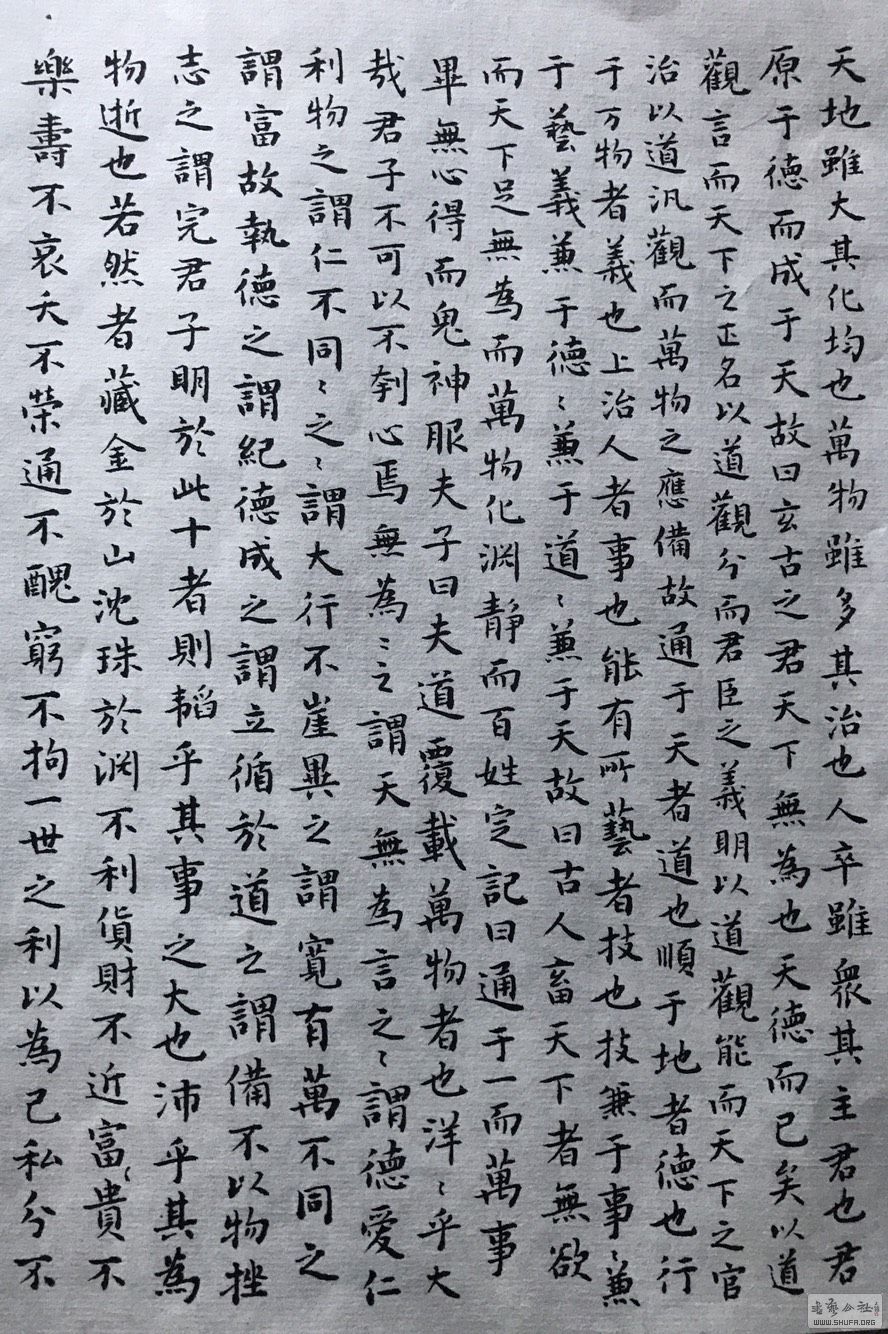 天地雖大其化均也萬物雖多其治也人卒雖衆其主君也君
原于德而成于天故曰玄古之君天下無為也天德而已矣以道
觀言而天下之正名以道觀分而君臣之義明以道觀能而天下之官
治以道汎觀而萬物之應備故通于天者道也順于地者德也行
于万物者義也上治人者事也能有所藝者技也技兼于事〻兼
于藝義兼于德〻兼于道〻兼于天故曰古人畜天下者無欲
而天下足無為而萬物化淵靜而百姓定記曰通于一而萬事
畢無心得而鬼神服夫子曰夫道覆載萬物者也洋〻乎大
哉君子不可以不刳心焉無為〻之謂天無為言之〻謂德愛仁
利物之謂仁不同〻之〻謂大行不崖異之謂寬有萬不同之
謂富故執德之謂紀德成之謂立循於道之謂備不以物挫
志之謂完君子明於此十者則韜乎其事之大也沛乎其為
物逝也若然者藏金於山沈珠於淵不利貨財不近富〻貴不
樂壽不哀夭不榮通不醜窮不拘一世之利以為己私分不
書藝公社
WWW.SHUFA.ORG